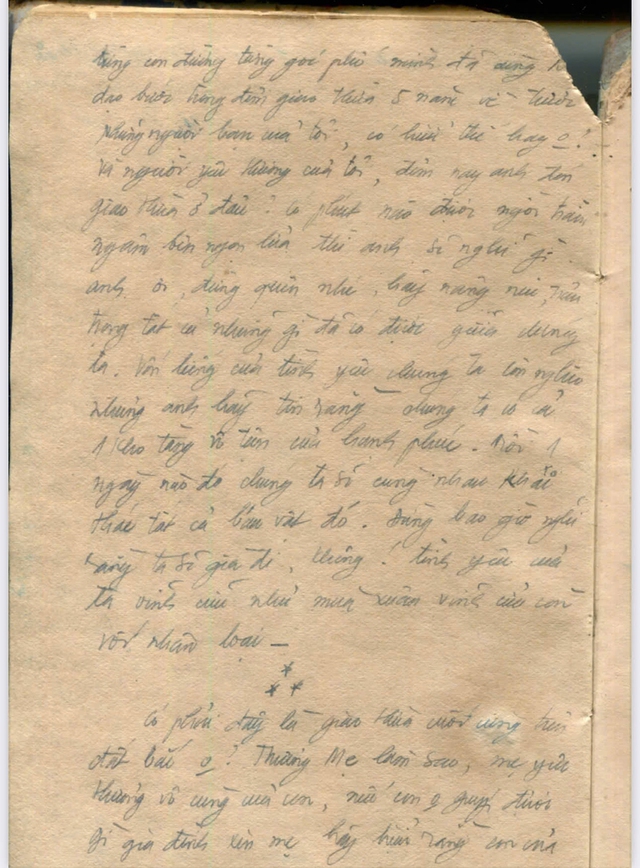 từng con đường từng góc phố mình đã cùng
dạo bước trong đêm giao thừa 5 năm về trước
những người bạn của tôi, có hiểu thế hay o?
Và người yêu thương của tôi, đêm nay anh đón
giao thừa ở đâu? Có phút nào được ngồi trầm
ngâm bên ngọn lửa thì anh sẽ nghĩ gì.
anh ơi, đừng quên nhé, hãy nâng niu, trân
trọng tất cả những gì đã có được giữa chúng
ta. Vốn liếng của tình yêu chúng ta còn nghèo
nhưng anh hãy tin rằng chúng ta có cả
1 kho tàng vô tận của hạnh phúc. Rồi 1
ngày nào đó chúng ta sẽ cùng nhau khai
thác tất cả báu vật đó. Đừng bao giờ nghĩ
rằng ta sẽ già đi, không! tình yêu của
ta vĩnh cửu như mùa xuân vĩnh cửu còn
với nhân loại —
* * *
Có phải đây là giao thừa cuối cùng trên
đất bắc o? Thương Mẹ làm sao, mẹ yêu
thương vô cùng của con, nếu con o giúp được
gì gia đình xin mẹ hãy hiểu rằng con của